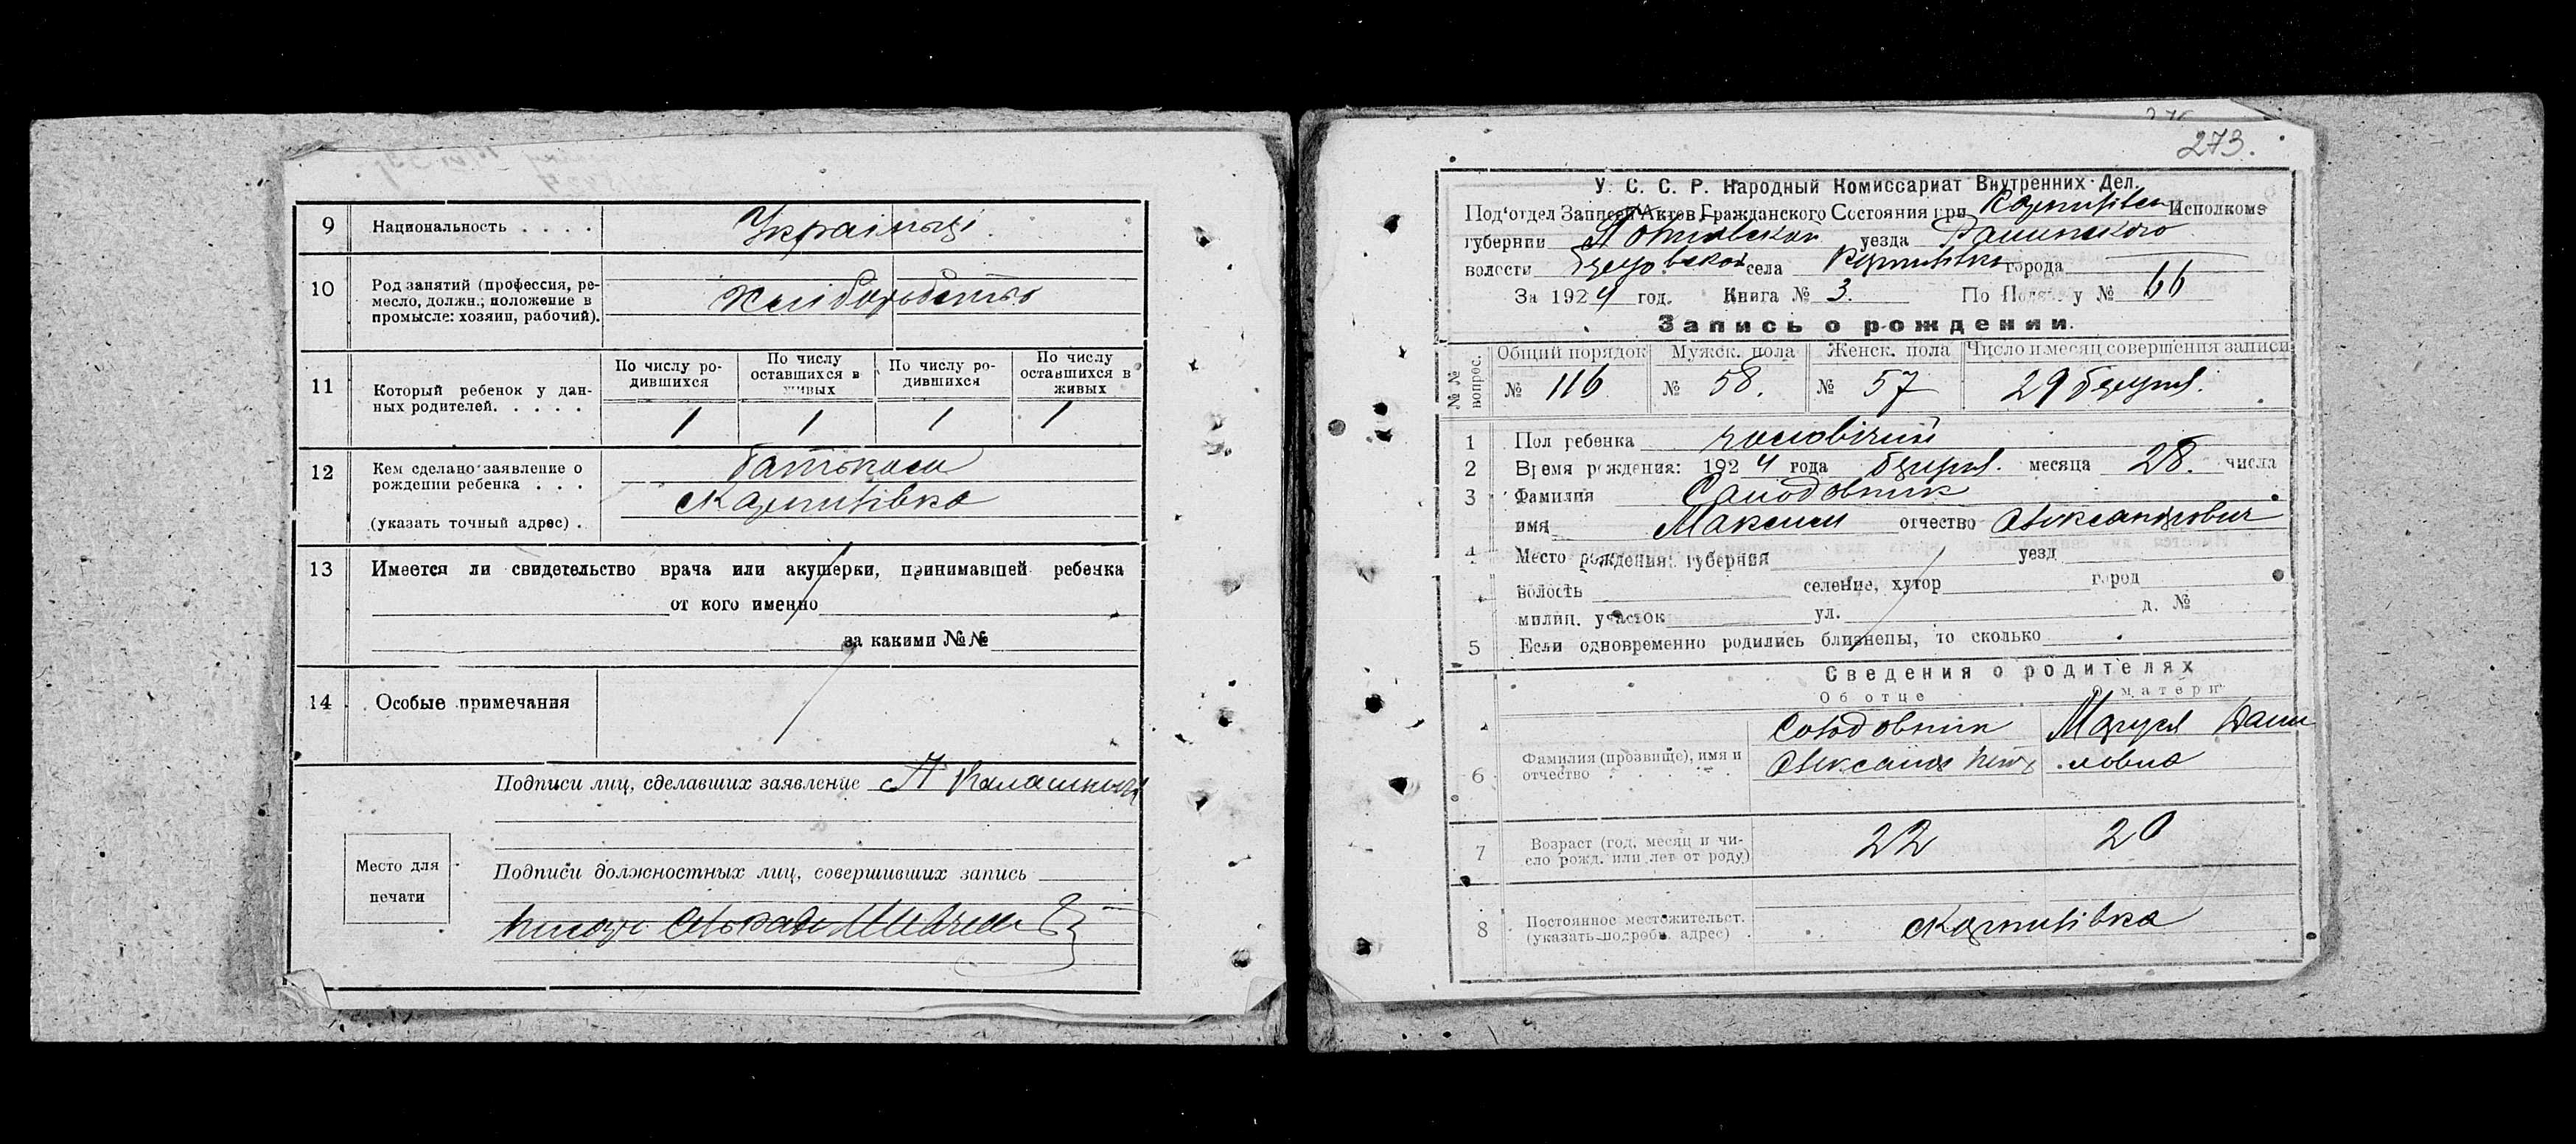 9 Национальность . . . . Українці.
10 Род занятий (профессия, ре-
месло, должн.; положение в
промысле: хозяин, рабочий). Хліборобство
11 Который ребенок у дан-
ных родителей. . . . .
По числу ро-
дившихся
По числу
оставшихся в
живых
По числу ро-
дившихся
По числу
оставшихся в
живых
1 1 1 1
12 Кем сделано заявление о
рождении ребенка . . .
(указать точный адрес) .
батьками
13 Имеется ли свидетельство врача или акушерки, принимавшей ребенка
от кого именно
за какими №№
14 Особые примечания
Подписи лиц, сделавших заявление
Место для
печати
Подписи должностных лиц, совершивших запись
273.
У. С. С. Р. Народный Комиссариат Внутренних Дел.
Под‘отдел Записей Актов Гражданского Состояния при Исполкоме
губернии Полтавской уезда
волости села города
За 1924 год. Книга № 3. По № 66
Запись о рождении.
№№ вопрос.
Общий порядок Мужск. пола Женск. пола Число и месяц совершения записи
№ 116 № 58. № 57 29
1 Пол ребенка чоловічий
2 Время рождения: 1924 года месяца 28. числа
3 Фамилия Солодовник
имя Максим отчество Олександрович
4 Место рождения: губерния уезд
волость селение, хутор город
милиц. участок ул. д. №
5 Если одновременно родились близнецы, то сколько
Сведения о родителях
Об отце О матери
6 Фамилия (прозвище), имя и
отчество
Солодовник
Маруся Дани
ловна
7 Возраст (год, месяц и чи-
сло рожд. или лет от роду) 22 20
8 Постоянное местожительст.
(указать подробн. адрес)